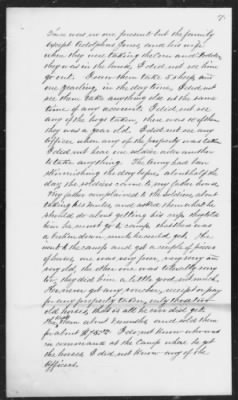 7.
There was no one present but the family
except Adolphus Jones and his wife
when they were taking the corn and fodder,
they was in the house, I did not see him
go out. I seen them take the sheep and
one yearling, in the day time, I did not
see them take anything else at the same
time of any account. I did not see
any of the hogs taken, there was
they was a year old. I did not see any
officer when any of the property was taken
I did not hear one soldier ask another
to take anything. The Army had been
skirmishing the day before, about half the
day the soldiers come to my father's house
My father complained to the soldiers about
taking his mules, and asked them what he
should do about getting his crop they told
him he must go to camp there
a broken down mule he could get. He
went to the camp and got a couple of pieces
of horses, one was very poor, very very
very old, the other one was tolerably very
too, they did him a little good, not much.
He never got any voucher, receipt or pay
for any property taken, only those two
old horses, that is all he ever did get.
He kept them about 2 months and sold them
for about $75.00. I do not know who was
in command at the Camp where he got
the horses. I did not know any of the
Officers.